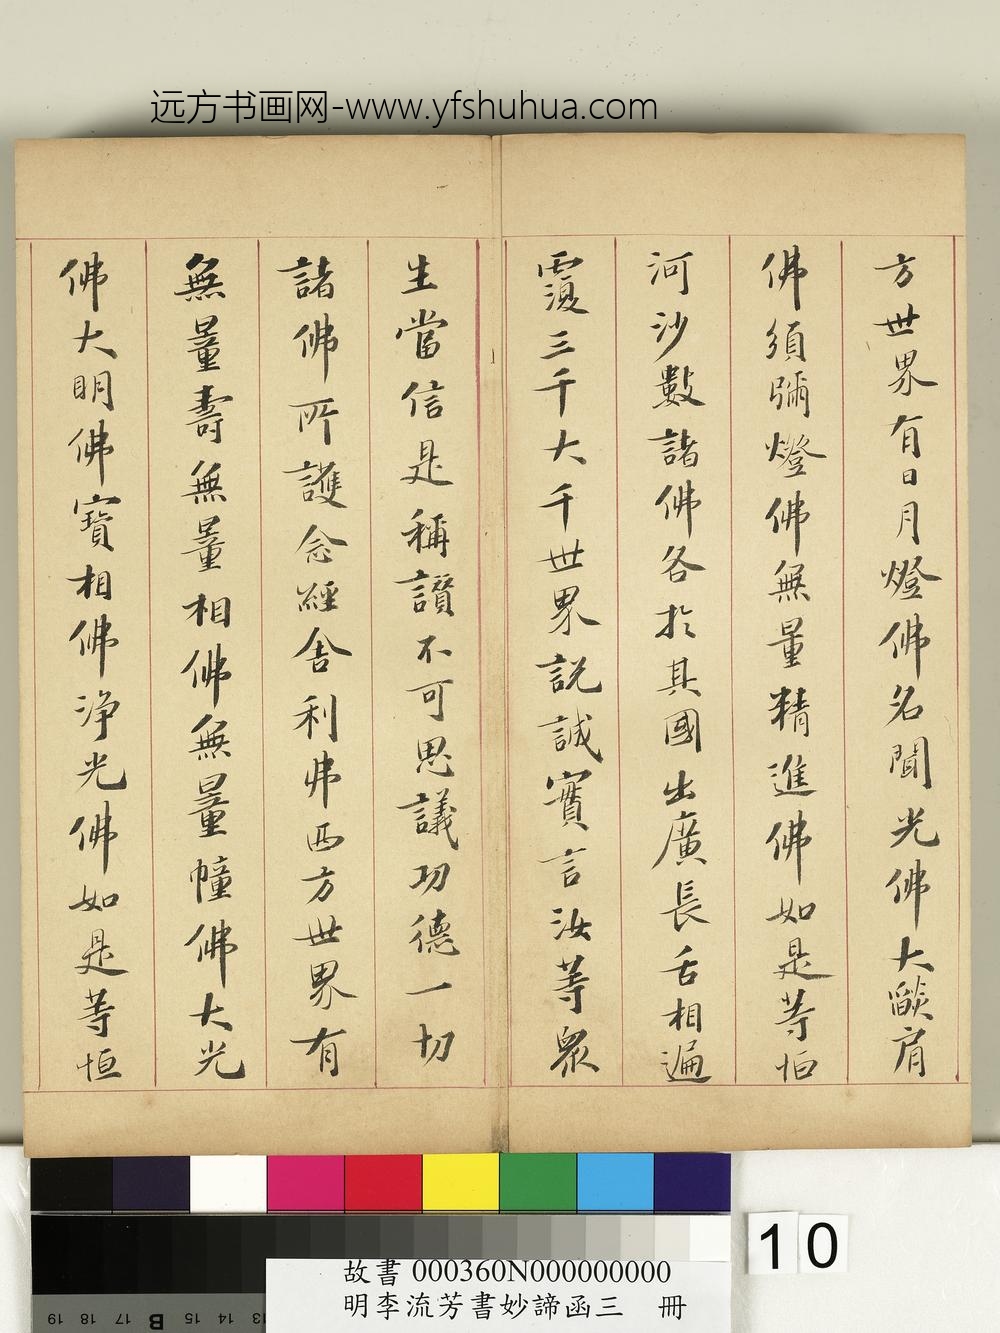 远方书画网-www.yfshuhua.com
方世界有日月燈佛名聞光佛大燄肩
佛須彌燈佛無量精進佛如是等恒
河沙數諸佛各於其國出廣長舌相遍
覆三千大千世界說誠實言汝等眾
生當信是稱讚不可思議功德一切
諸佛所護念經舍利弗西方世界有
無量壽無量相佛無量幢佛大光
佛大明佛寶相佛淨光佛如是等恒
10
故書 000360N000000000
明李流芳書妙諦函三 冊
19 18 17 B 15 14 13